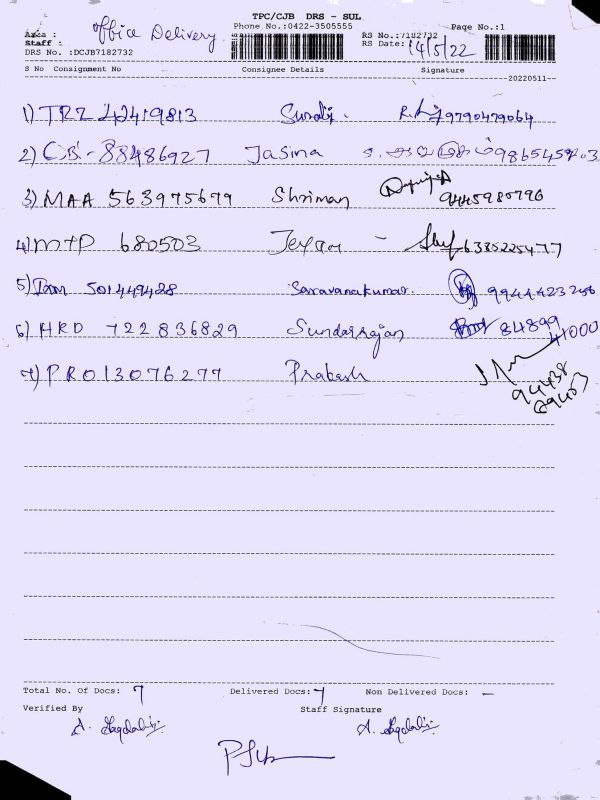 TPC/CJB DRS - SUL
Office Delivery
Phone No.:0422-3505555
Page No.:1
Area :
Staff :
DRS No. :DCJB7182732
RS No.:7182732
RS Date: 14/5/22
S No Consignment No Consignee Details Signature
20220511
1) TRZ 42419813 Suraj. 9790479064
2) CB - 88486927 Jasima
3) MAA 563975679 Shriman 9445980796
4) MTP 680503 Jeyam - 6385225477
5) 501449428 Saravanakumar. 9944423256
6) HRD 722836829 Sundarrajan 84899
41000
7) PRO13076277 Prabash
94438
69403
Total No. Of Docs: 7 Delivered Docs: 7 Non Delivered Docs: -
Verified By Staff Signature